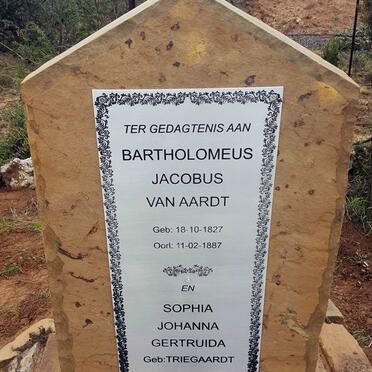 TER GEDAGTENIS AAN
BARTHOLOMEUS
JACOBUS
VAN AARDT
Geb: 18-10-1827
Oorl: 11-02-1887
EN
SOPHIA
JOHANNA
GERTRUIDA
Geb:TRIEGAARDT